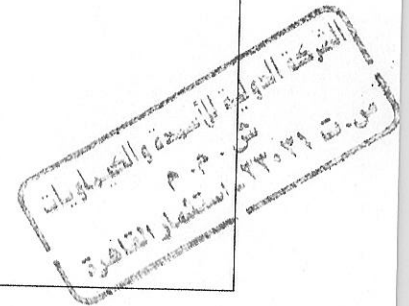 الشركة الدولية للأسمدة والكيماويات
ش . م . م
س . ت ٢٣٠٢٩ استثمار القاهرة